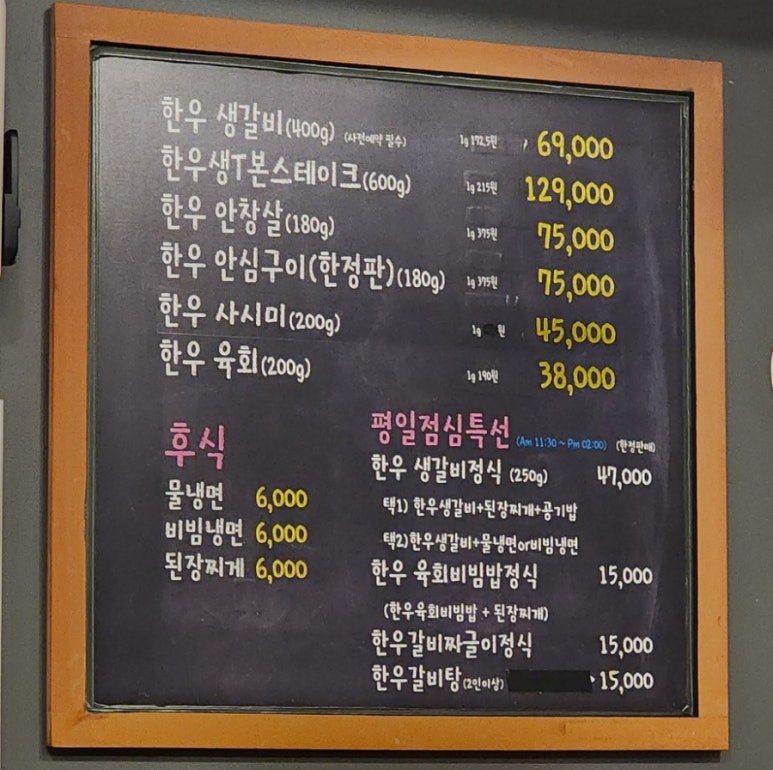 한우 생갈비(400g) (사전예약 필수) 1g 172.5원 69,000
한우생T본스테이크(600g) 1g 215원 129,000
한우 안창살(180g) 1g 375원 75,000
한우 안심구이(한정판)(180g) 1g 375원 75,000
한우 사시미(200g) 1g 원 45,000
한우 육회(200g) 1g 190원 38,000
후식
물냉면 6,000
비빔냉면 6,000
된장찌게 6,000
평일점심특선 (Am 11:30 ~ Pm 02:00) (한정판매)
한우 생갈비정식 (250g) 47,000
택1) 한우생갈비+된장찌개+공기밥
택2)한우생갈비+물냉면or비빔냉면
한우 육회비빔밥정식 15,000
(한우육회비빔밥 + 된장찌개)
한우갈비짜글이정식 15,000
한우갈비탕(2인이상) 15,000